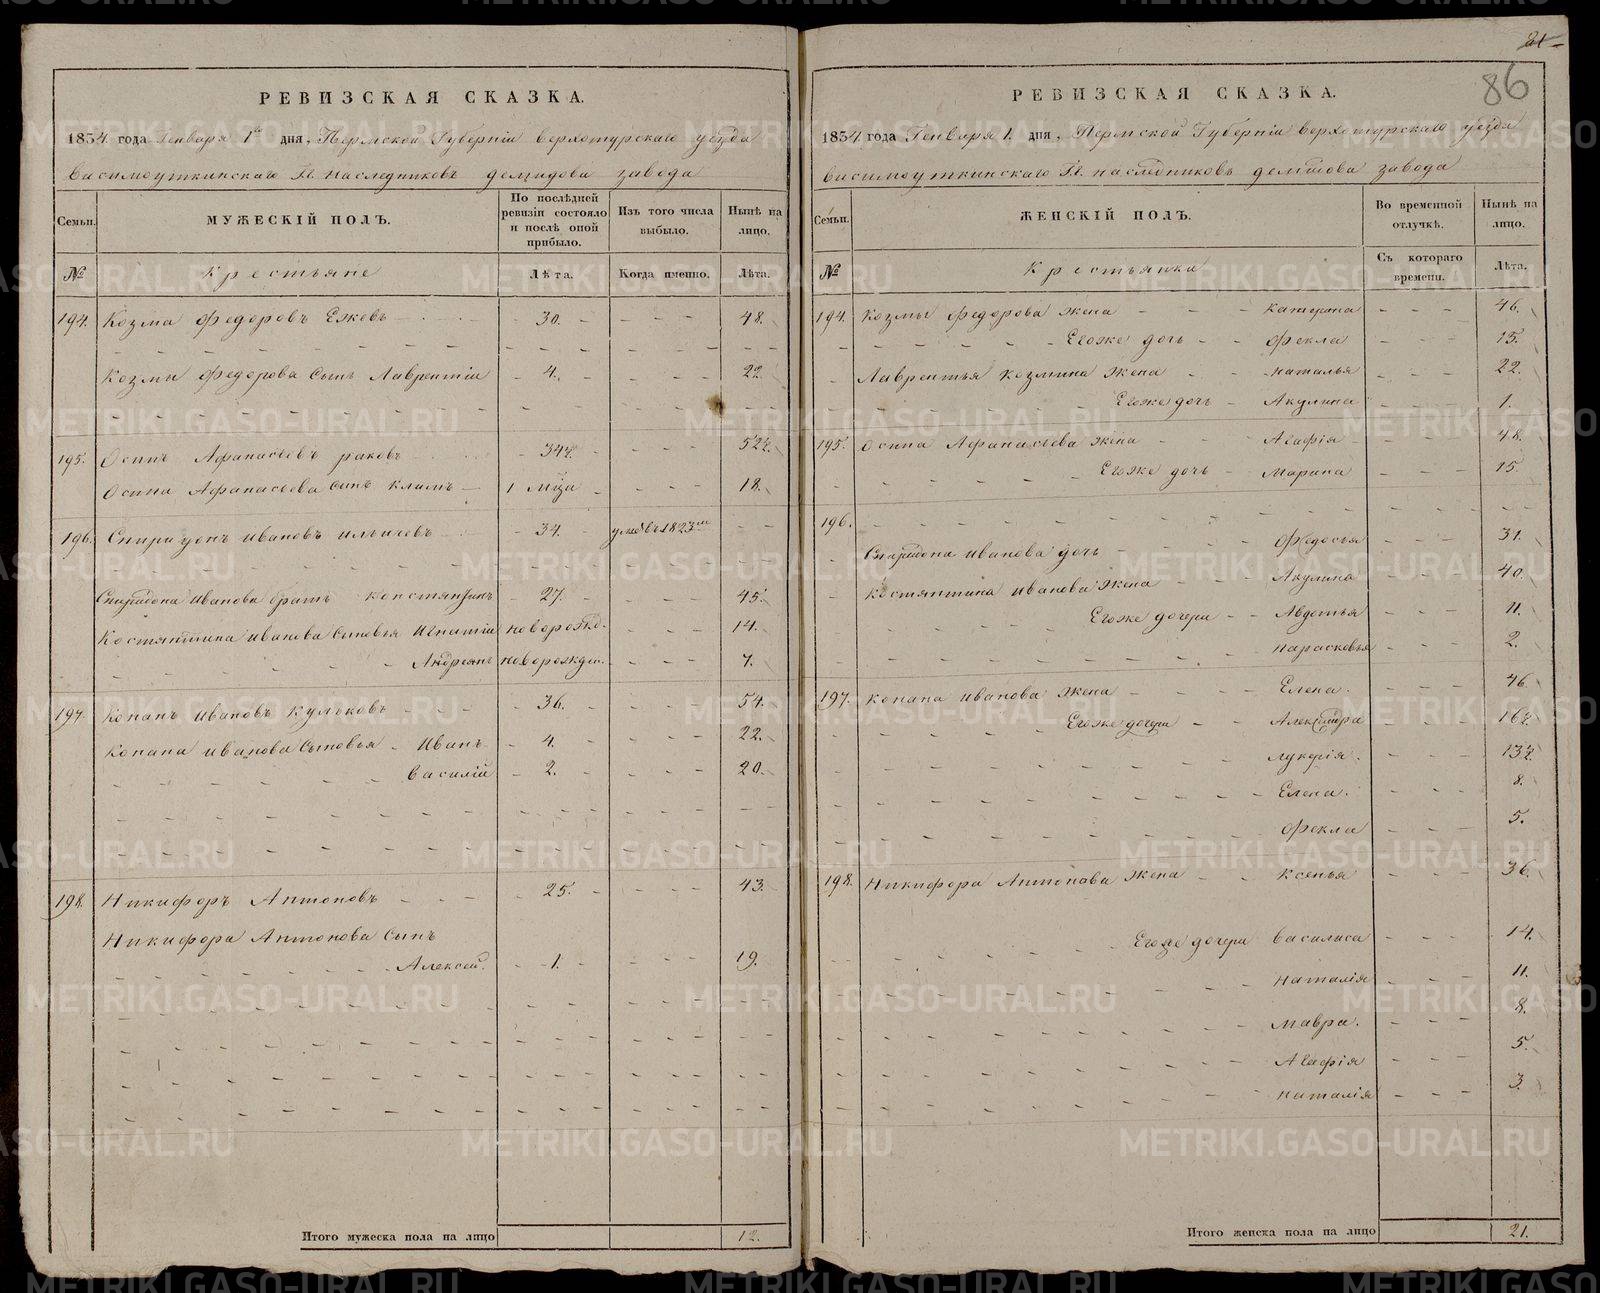 РЕВИЗСКАЯ СКАЗКА.
1834 года Генваря 1го дня, Пермской Губерніи верхотурскаго уѣзда
висимоуткинскаго Гг. наследниковъ демидова завода
Семьи.
МУЖЕСКІЙ ПОЛЪ.
По послѣдней ревизіи состояло и послѣ оной прибыло.
Изъ того числа выбыло.
Нынѣ на лицо.
№ Крестьяне Лѣта. Когда именно. Лѣта.
194. Козма Федоровъ Ежовъ 30. 48.
Козмы Федорова Сынъ Лаврентіи 4. 22.
195. Осипъ Афанасьевъ раковъ 34½. 52½.
Осипа Афанасьева Сынъ Климъ 1 м:ца 18.
196. Спиридонъ Ивановъ ильичевъ 34. 1823
Спиридона Иванова братъ Констянтинъ 27. 45.
Костянтина Иванова Сыновья Игнатіи новорожд. 14.
Андреянъ новорожден. 7.
197. Конанъ Ивановъ Кульковъ 36. 54.
Конана Иванова Сыновья Иванъ 4. 22.
василій 2. 20.
198. Никифоръ Антоновъ 25. 43.
Никифора Антонова Сынъ
Алексей. 1. 19.
Итого мужеска пола на лицо 12.
21
86
РЕВИЗСКАЯ СКАЗКА.
1834 года Генваря 1. дня, Пермской Губерніи верхотурскаго уѣзда
висимоуткинскаго Гг. наследниковъ демидова завода
Семьи.
ЖЕНСКІЙ ПОЛЪ.
Во временной отлучкѣ.
Нынѣ на лицо.
№ Крестьянки Съ котораго времени. Лѣта.
194. Козмы федорова жена Катерина 46.
Егоже дочь Фекла 15.
Лаврентья Козмина жена наталья 22.
Егоже дочь Акулина 1.
195. Осипа Афанасьева жена Агафія 48.
Егоже дочь Марина 15.
196.
Спиридона Иванова дочь Федосья 31.
Костянтина Иванова жена Акулина 40.
Егоже дочери Авдотья 11.
парасковья 2.
197. Конана Иванова жена Елена. 46.
Егоже дочери Александра 16½.
лукерія. 13½.
Елена. 8.
Фекла 5.
198. Никифора Антонова жена Ксенья 36.
Егоже дочери василиса 14.
наталія 11.
мавра. 8.
Агафія 5.
наталія 3.
Итого женска пола на лицо 21.
METRIKI.GASO-URAL.RU